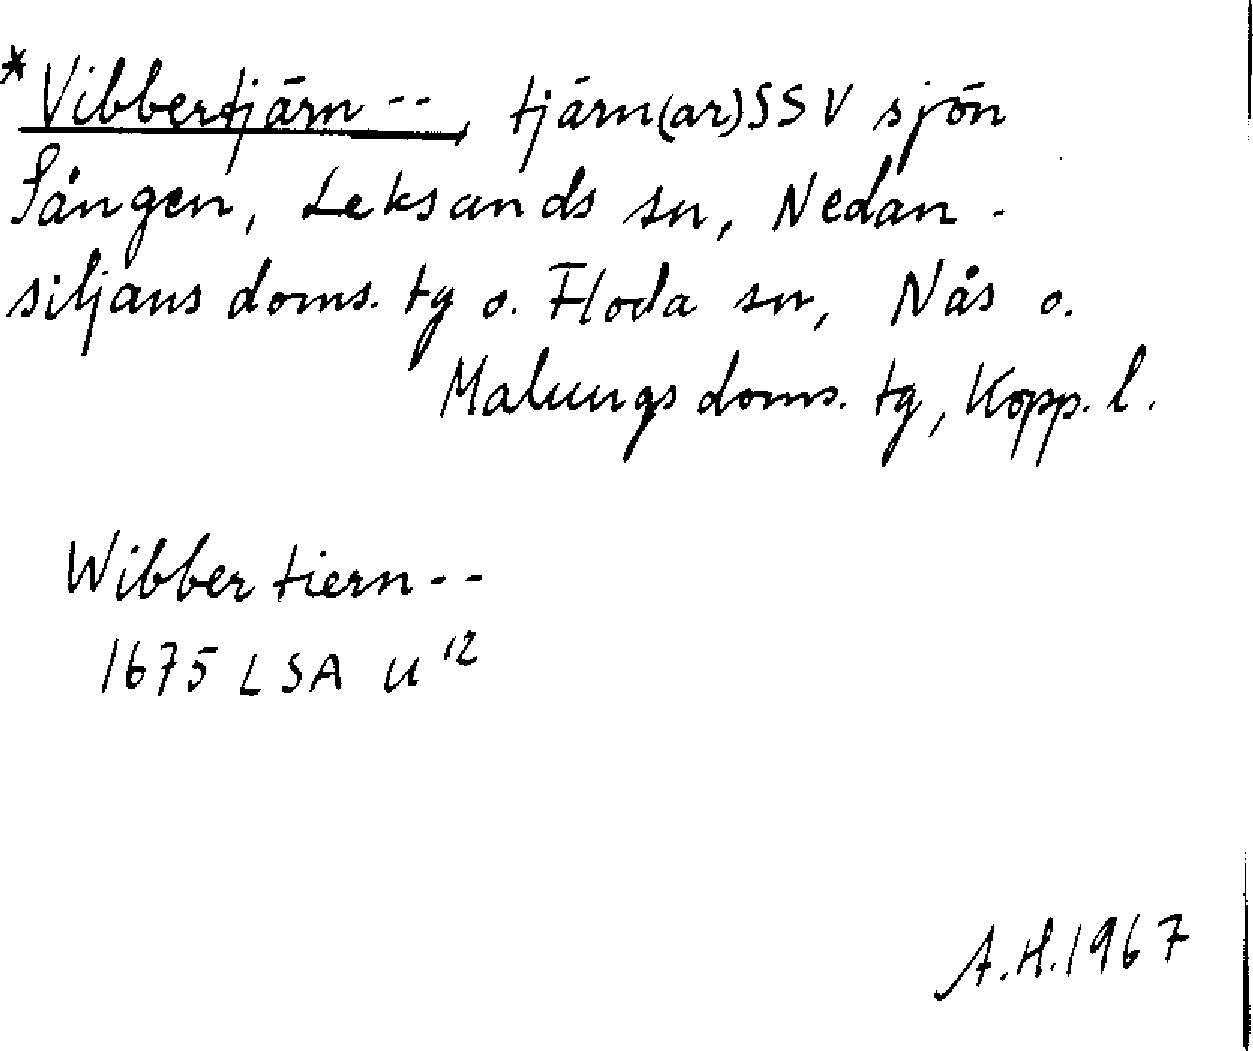 *Vibbertjärn--, tjärn(ar) SSV sjön
Sången, Leksands sn, Nedan-
siljans doms. tg o. Floda sn, Nås o.
Malungs doms. tg, Kopp. l.
Wibber tiern--
1675 LSA U 12
A.H. 1967